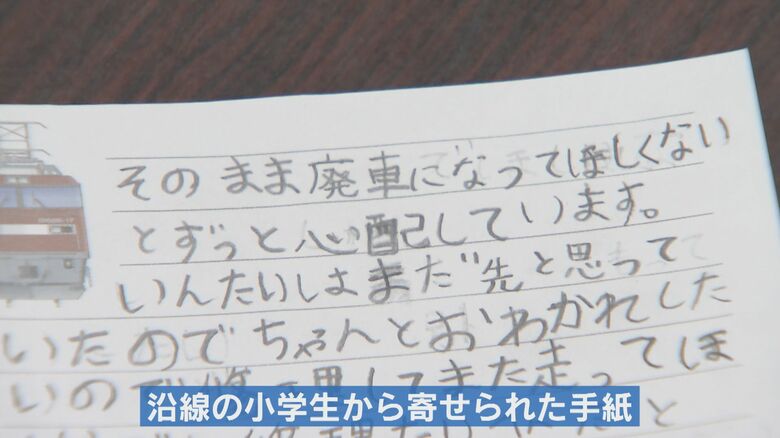 そのまま廃車になってほしくない
とずっと心配しています。
いんたいしはまだ先と思って
いたのでちゃんとおわかれした
いので 理してまた走ってほ
沿線の小学生から寄せられた手紙